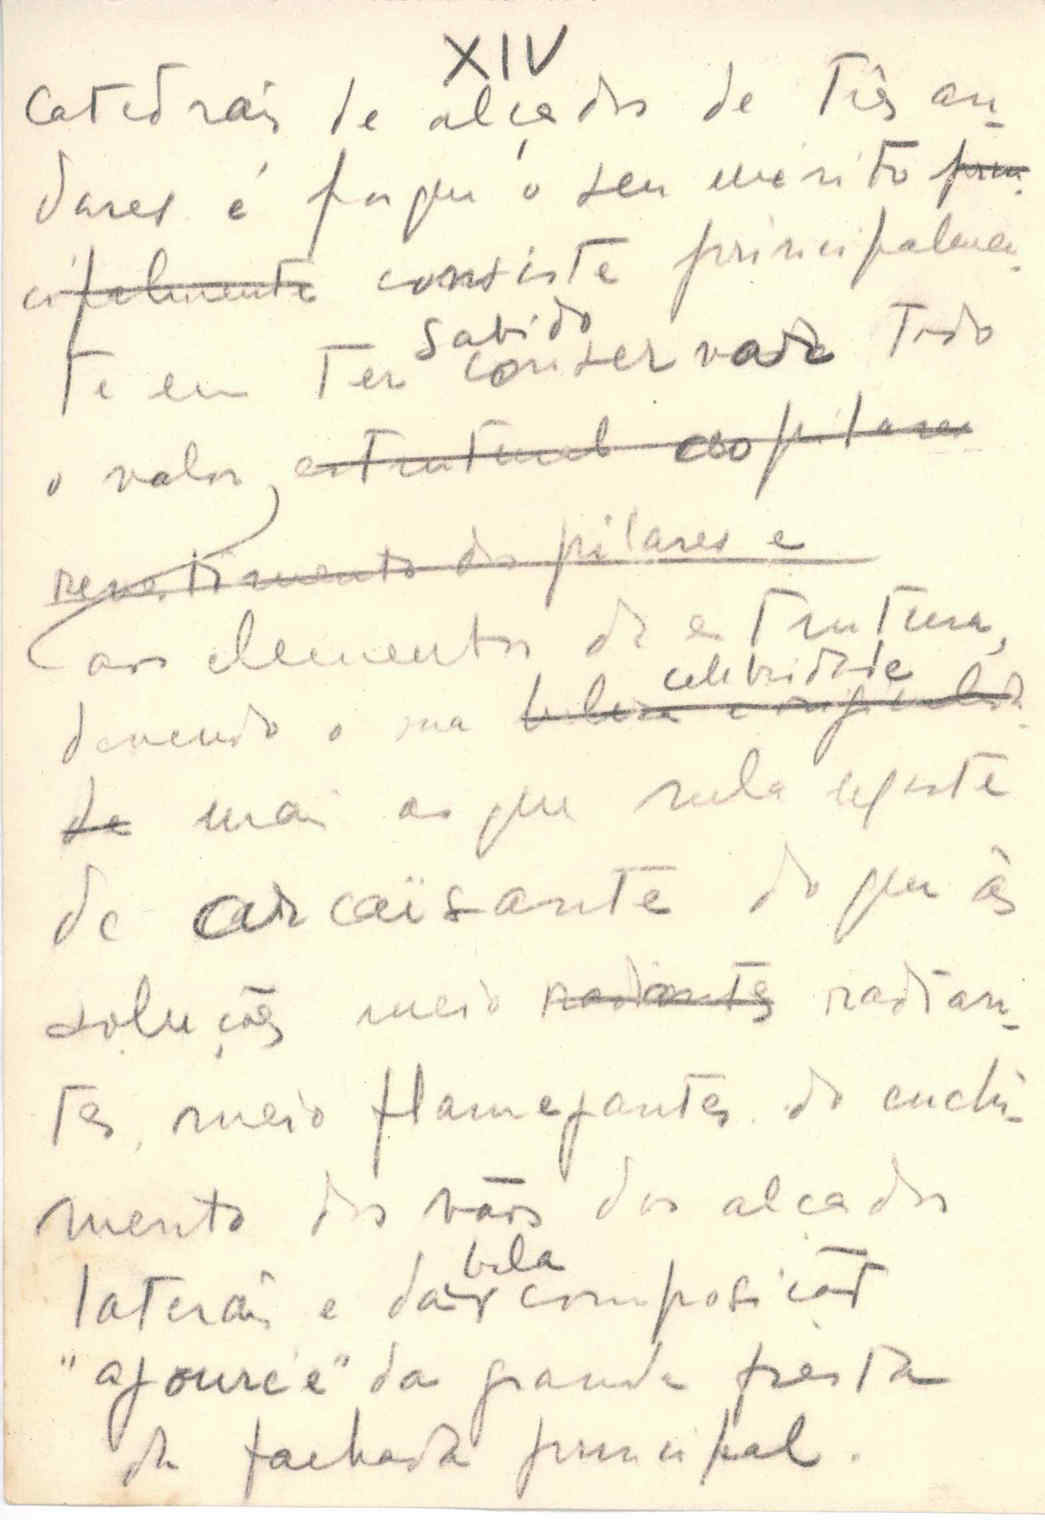 XIV
Catedrais de alçados de três an-
dares é porque o seu mérito prin-
cipalmente consiste principalmen-
te em ter sabido conservar todo
o valor, estrutural ao pilares
revestimento dos pilares e
aos elementos da estrutura,
devendo a sua celebridade
de mais ao que nela
de arcaïsante do que às
soluções meio radiantes radian-
tes, meio flamejantes do enchi-
mento dos vãos dos alçados
laterais e da bela composição
"ajourée" da grande fresta
da fachada principal.